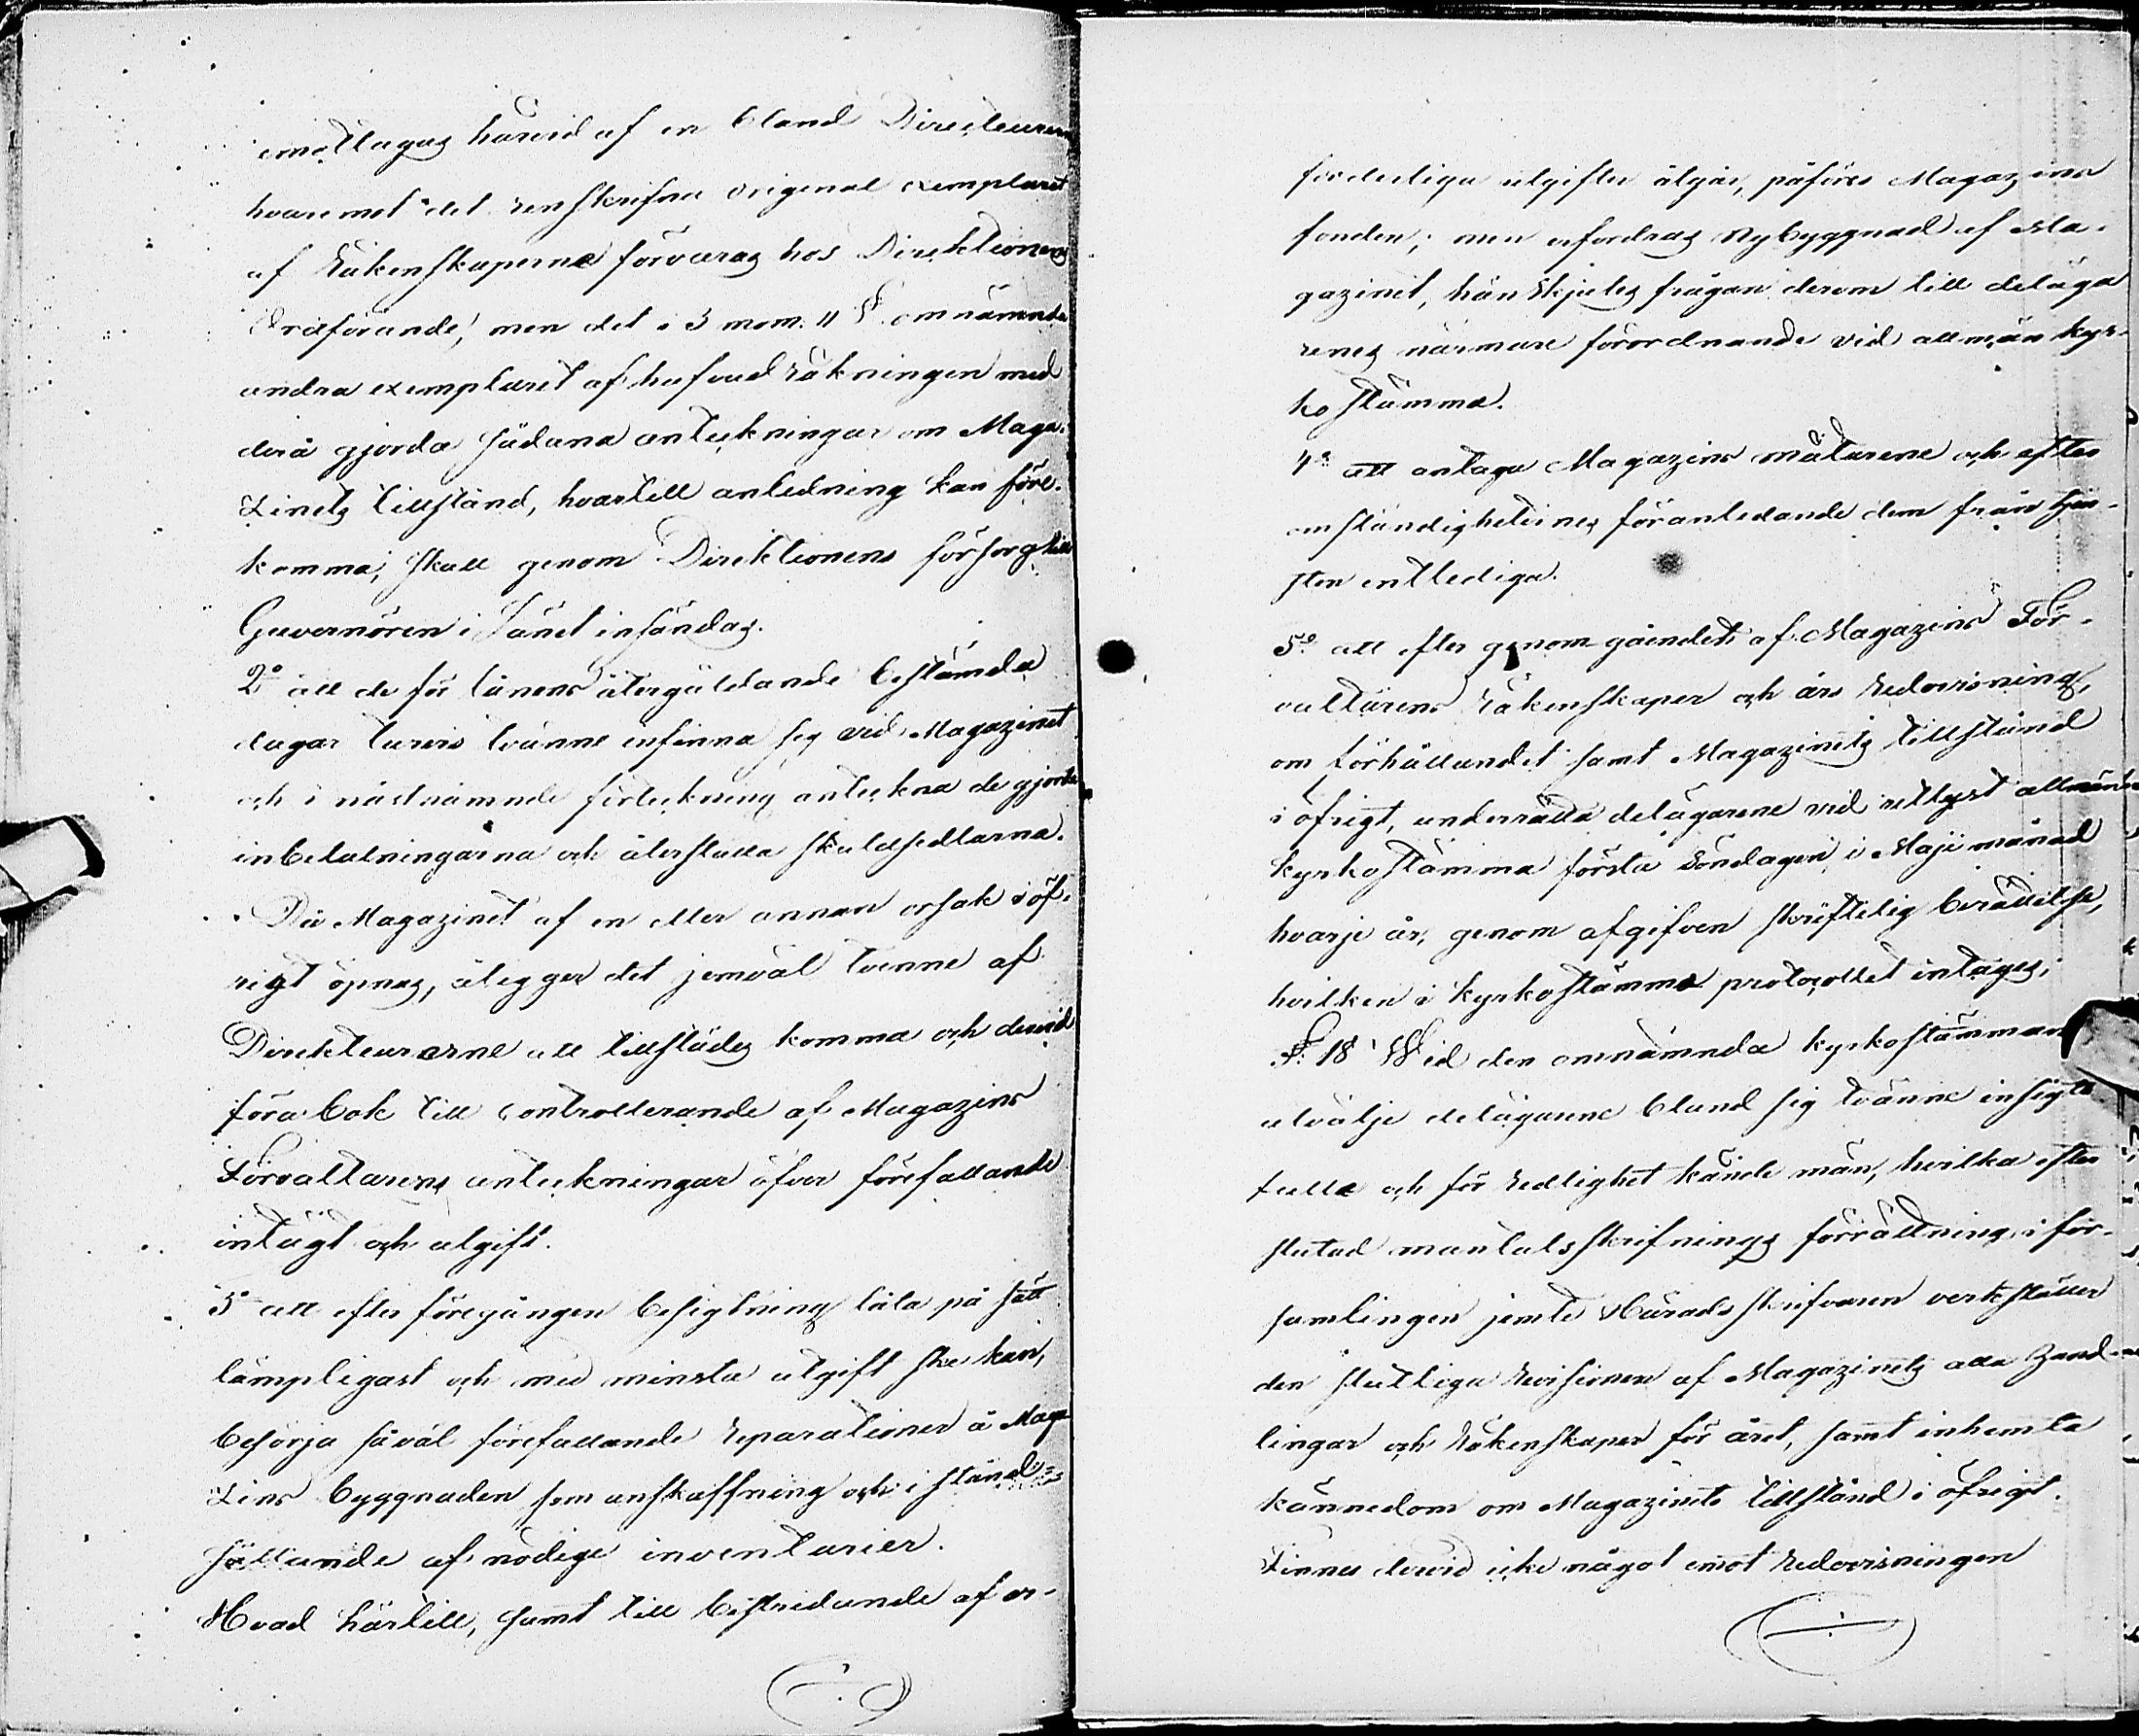 emottagas härvid af en bland Directeurern
hvaremot det renskrifne original exemplaret
af Räkenskaperne förvaras hos Direktionens
Ordförande, men det i 3 mom. 11 §. omnämnda
andra exemplaret af hufvud räkningen med
derå gjorda sådana anteckningar om Maga-
zinets tillstånd, hvartill anledning kan före-
komma, skall genom Direktionens försorg till
Guvernören i Länet insändas.
2o att de för lånens återgäldande bestämda
dagar turvis tvänne infinna sig vid Magazinet
och i nästnämnde förteckning anteckna de gjorda
inbetalningarna och återställa skuldsedlarna.
Då Magazinet af en eller annan orsak i öf-
rigt öpnas, åligger det jemväl tvenne af
Direkteurerne att tillstädes komma och dervid
föra bok till controllerande af Magazins
Förvaltarens anteckningar öfver förefallande
intägt och utgift.
3o att efter föregången besigtning låta på sätt
lämpligast och med minsta utgift ske kan,
besörja såväl förefallande reparationer å Maga
zins byggnaden som anskaffning och i stånd-
sättande af nödige inventarier.
Hvad härtill, samt till bestridande af er-
forderliga utgifter åtgår, påföres Magazins
fonden; men erfordras Nybyggnad af Ma-
gazinet, hänskjutes frågan derom till delägar
renes närmare förordnande vid allmän kyr-
kostämma.
4o att antaga Magazins mätarene och efter
omständigheternes föranledande dem från tjen-
sten entlediga.
5o att efter genomgåendet af Magazins För-
valtarens räkenskaper och års redovisning,
om förhållandet samt Magazinets tillstånd
i öfrigt, underrätta delägarene vid utlyst allmän
kyrkostämma första Söndagen i Maji månad
hvarje år, genom afgifven skriftelig berättelse,
hvilken i kyrkostämmo protocollet intages.
§. 18 Wid den omnämnda kyrkostämman
utvälje delägarene bland sig tvänne insigts
fulla och för redlighet kände män, hvilka efter
slutad mantalsskrifnings förrättning i för-
samlingen jemte Häradsskrifvaren verkställer
den slutliga revisionen af Magazinets alla hand-
lingar och räkenskaper för året, samt inhemta
kännedom om Magazinets tillstånd i öfrigt.
Finnes dervid icke något emot redovisningen